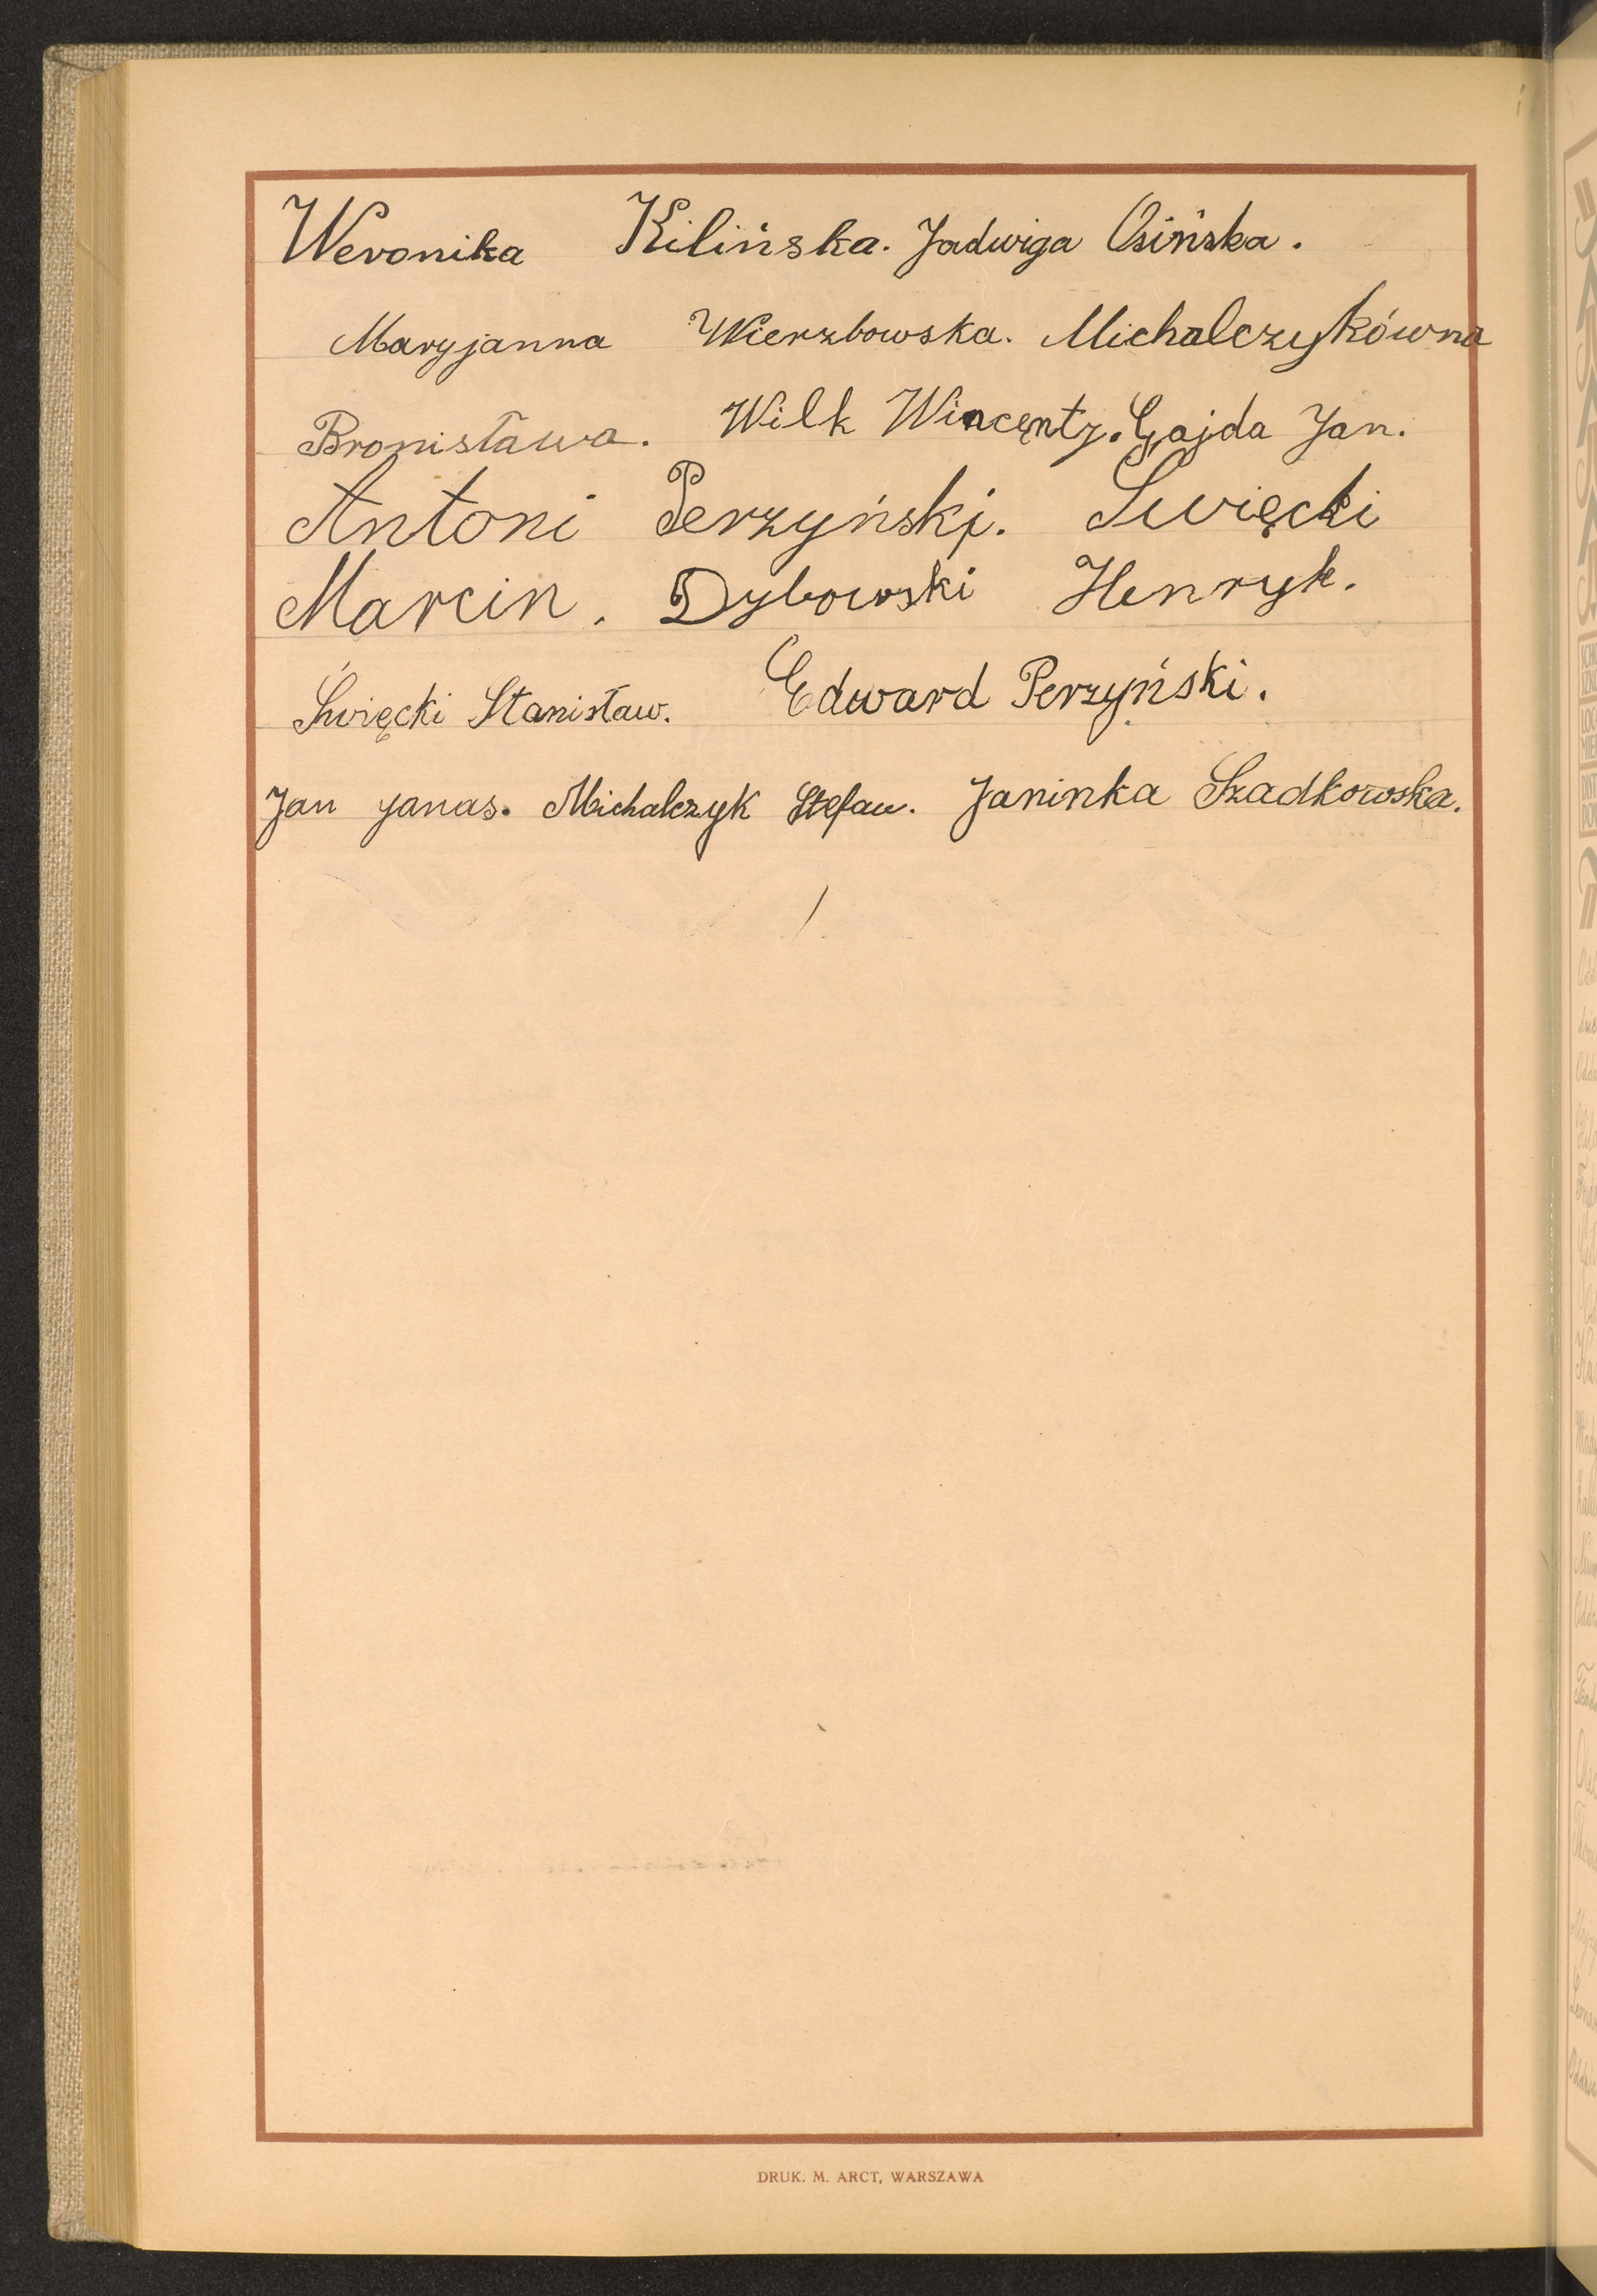 Weronika Kilińska. Jadwiga Osińska.
Maryjanna Wierzbowska. Michalczykówna
Bronisława. Wilk Wincęnty. Gajda Jan.
Antoni Perzyński. Swięcki
Marcin. Dybowski Henryk.
Święcki Stanisław. Edward Perzyński.
Jan Janas. Michalczyk Stefan. Janinka Szadkowska.
DRUK. M. ARCT, WARSZAWA